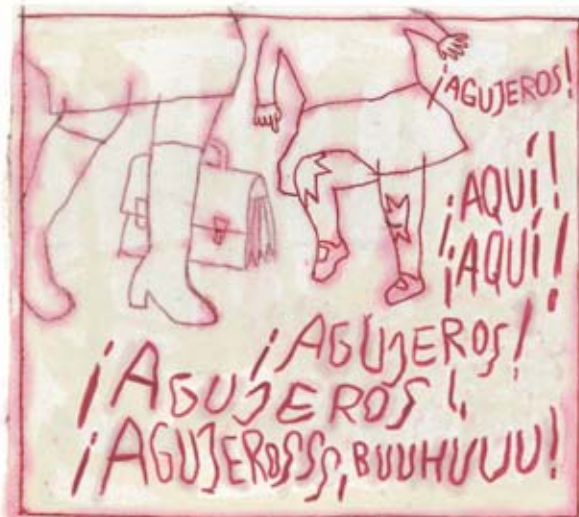 ¡AGUJEROS!
¡AQUÍ!
¡AQUÍ!
¡AGUJEROS!
¡AGUJEROS!,
¡AGUJEROSSS, BUUHUUU!